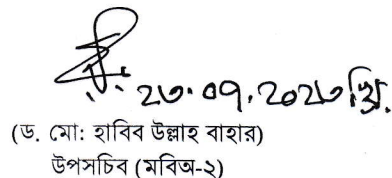 ২৩.০৭.২০২৩ খ্রি.
(ড. মো: হাবিব উল্লাহ বাহার)
উপসচিব (মবিঅ-২)